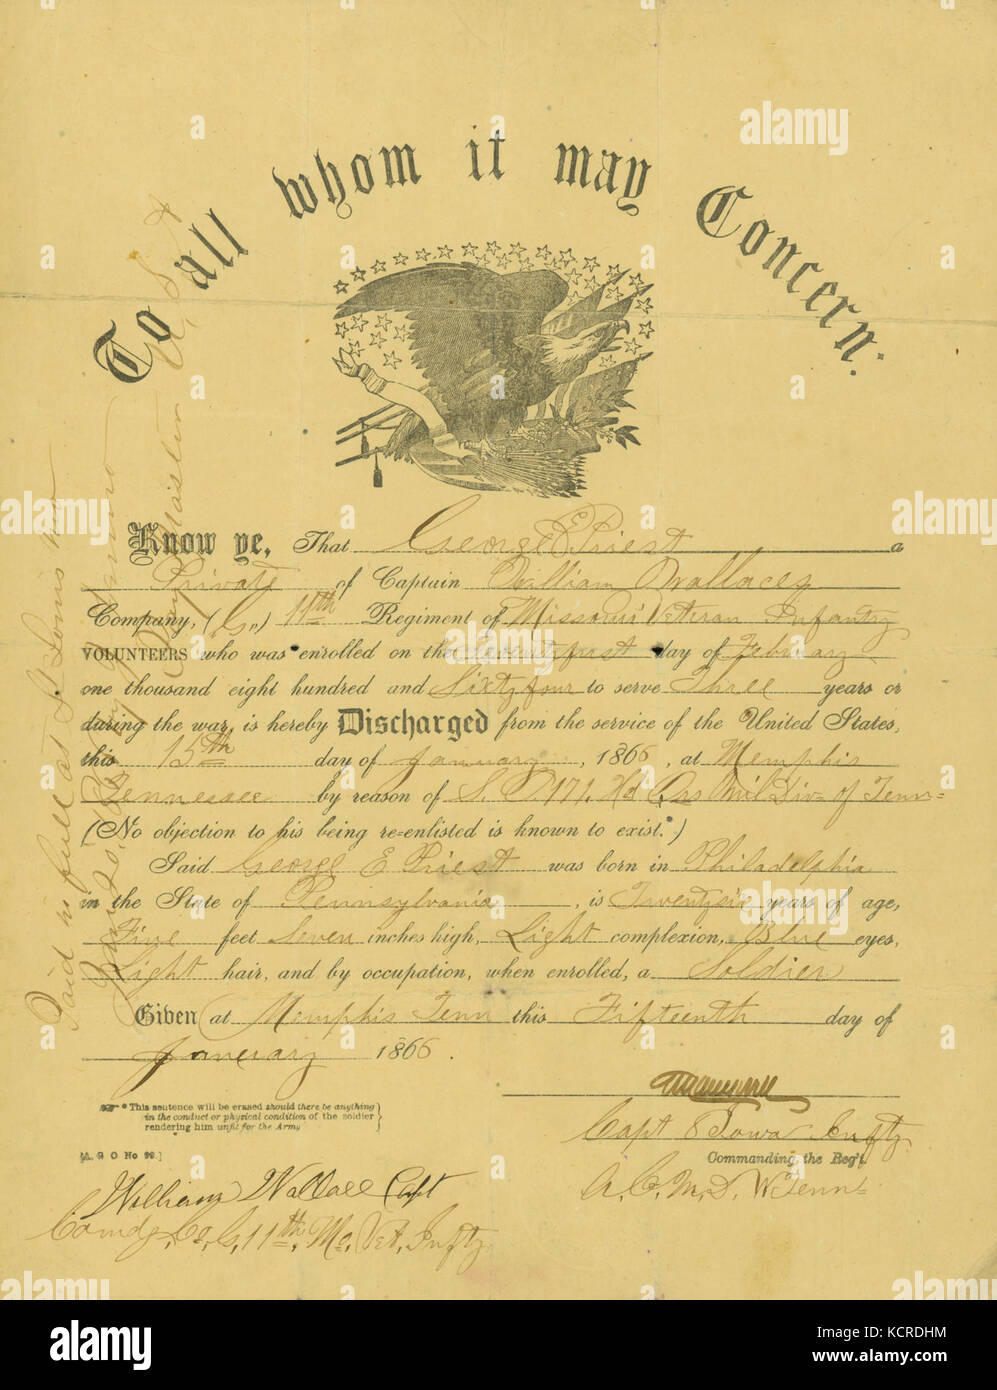 To all whom it may Concern:
Know ye, That George E Priest a
Private of Captain William Wallaces
Company, (G,) 11th Regiment of Missouri Veteran Infantry
VOLUNTEERS who was enrolled on the day of February
one thousand eight hundred and Sixty four to serve Three years or
during the war, is hereby Discharged from the service of the United States,
this 15th day of January, 1866, at Memphis
Tennessee by reason of S. O. 171. Hd Qrs Mil Div= of Tenn=
(No objection to his being re-enlisted is known to exist.*)
Said George E Priest was born in Philadelphia
in the State of Pennsylvania, is Twentysix years of age,
Five feet Seven inches high, Light complexion, Blue eyes,
Light hair, and by occupation, when enrolled, a Soldier
Given at Memphis Tenn this Fifteenth day of
January 1866.
* This sentence will be erased should there be anything
in the conduct or physical condition of the soldier
rendering him unfit for the Army
[A. G O No 99.]
Capt 8 Iowa Infty.
Commanding the Reg't.
A. C. M. D. W Tenn=
William Wallace Capt
Comdg, Co, G, 11th, Mo, Vet, Infty
Paid in full at St Louis Mo
Paymaster U, S, A
alamy
Image ID: KCRDHM
www.alamy.com